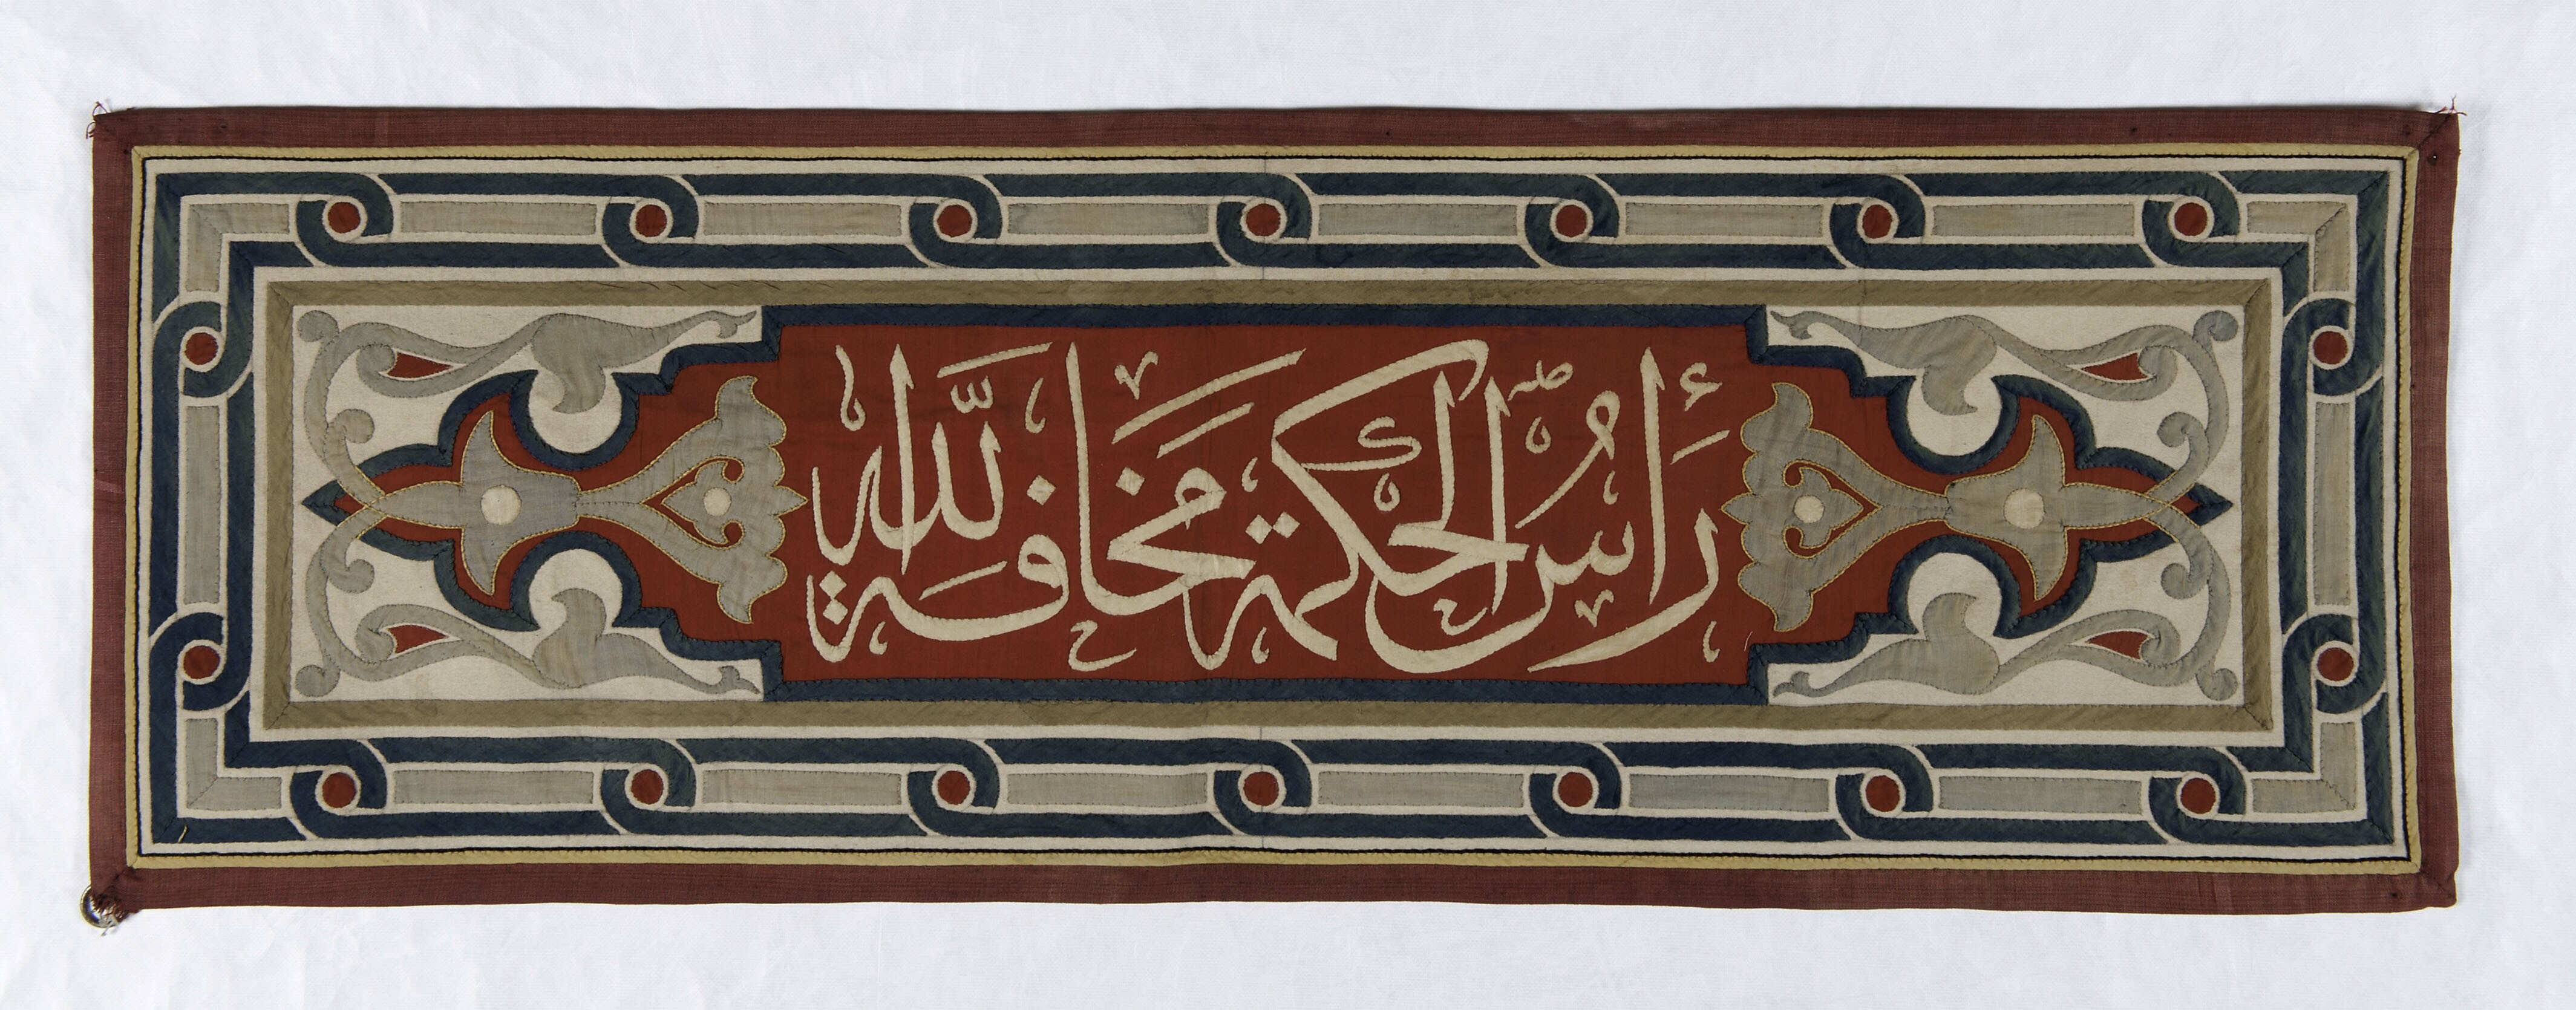 رَأْسُ الحِكمَةِ مَخَافَةُ اللّٰهِ